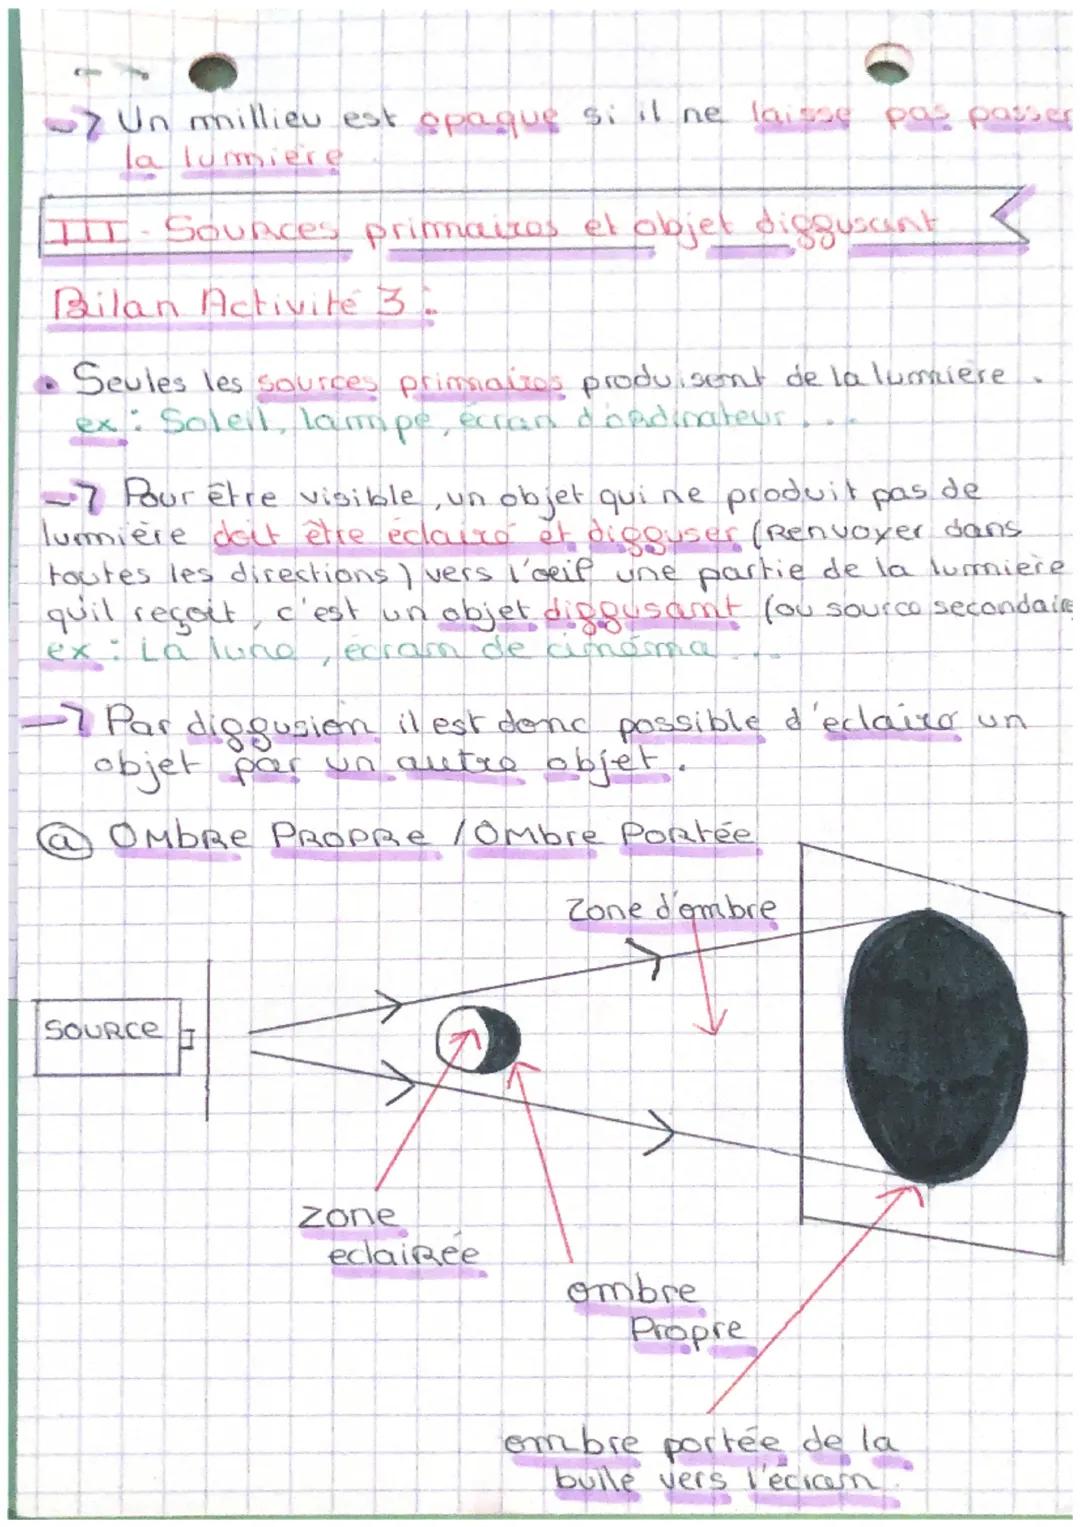 -> Un millieu est opaque si il ne laisse pas passer
la lumière
III - Sources primaires et objet diffusant
Bilan Activité 3 :
• Seules les sources primaires produisent de la lumière.
ex : Soleil, lampe, écran d'ordinateur...
-> Pour être visible, un objet qui ne produit pas de
lumière doit être éclairé et diffuser (Renvoyer dans
toutes les directions) vers l'oeil une partie de la lumière
qu'il reçoit, c'est un objet diffusant (ou source secondaire
ex : La lune, écran de cinéma...
-> Par diffusion il est donc possible d'eclairer un
objet par un autre objet.
ⓐ OMBRE PROPRE / OMBRE PORTÉE
Zone d'ombre
SOURCE
Zone
eclairée
ombre
Propre
ombre portée de la
bulle vers l'écran.